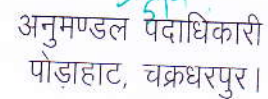 अनुमण्डल पदाधिकारी
पोड़ाहाट, चक्रधरपुर।